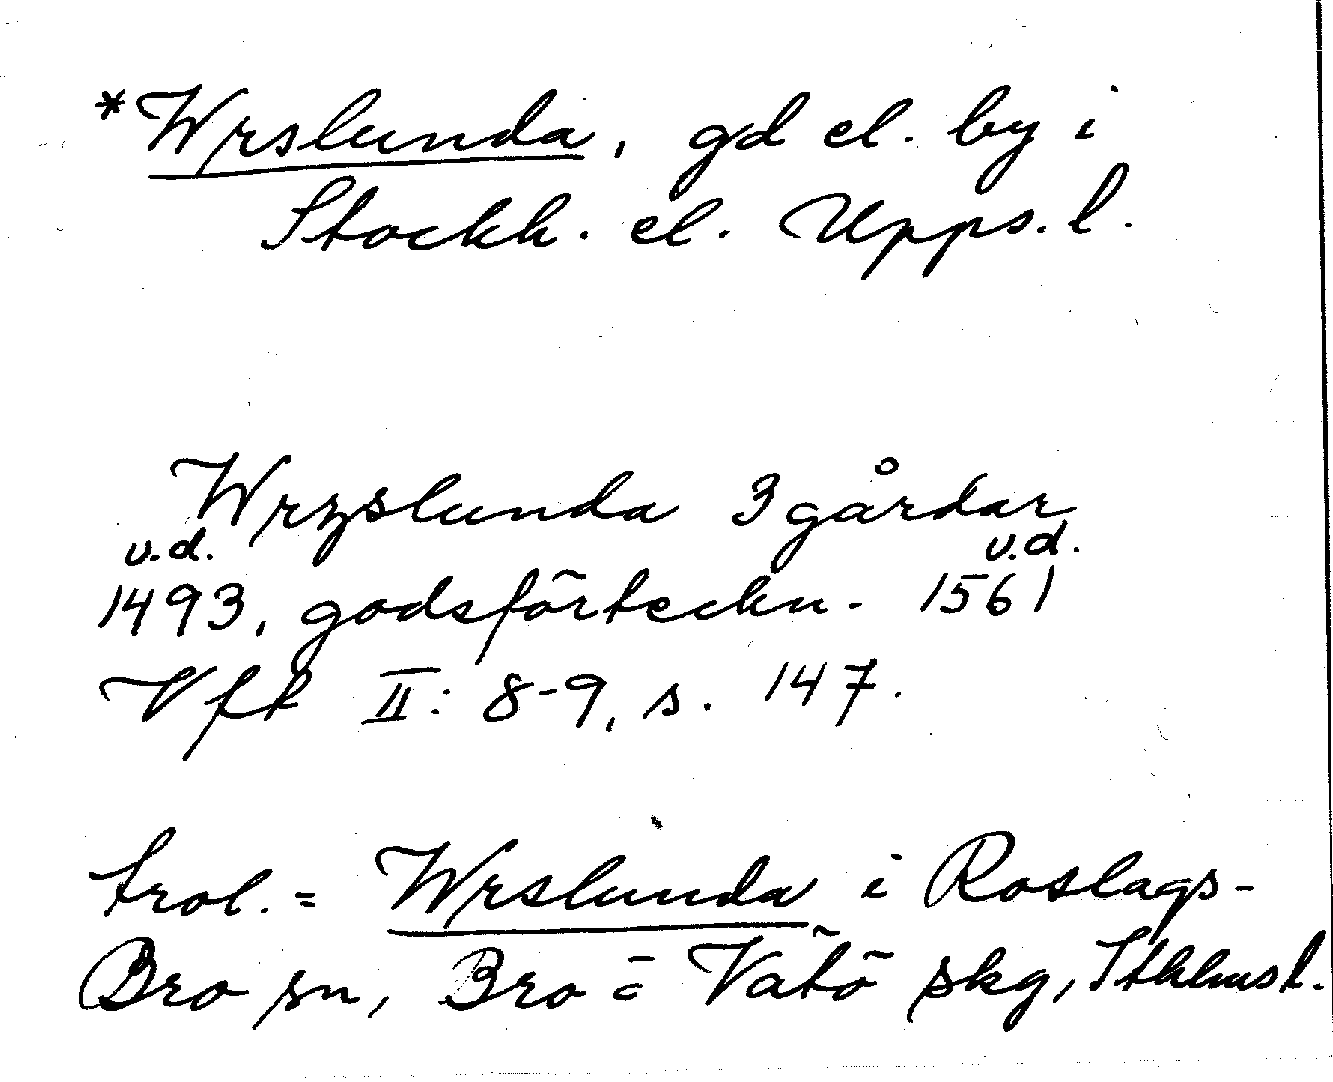 *Wrslunda, gd el. by i
Stockh. el. Upps. l.
Wrzslunda 3 gårdar
u.d. u.d.
1493, godsförteckn. 1561
Vft II: 8-9, s. 147.
trol. = Wrslunda i Roslags-
Bro sn, Bro o Vätö skg, Sthlms l.